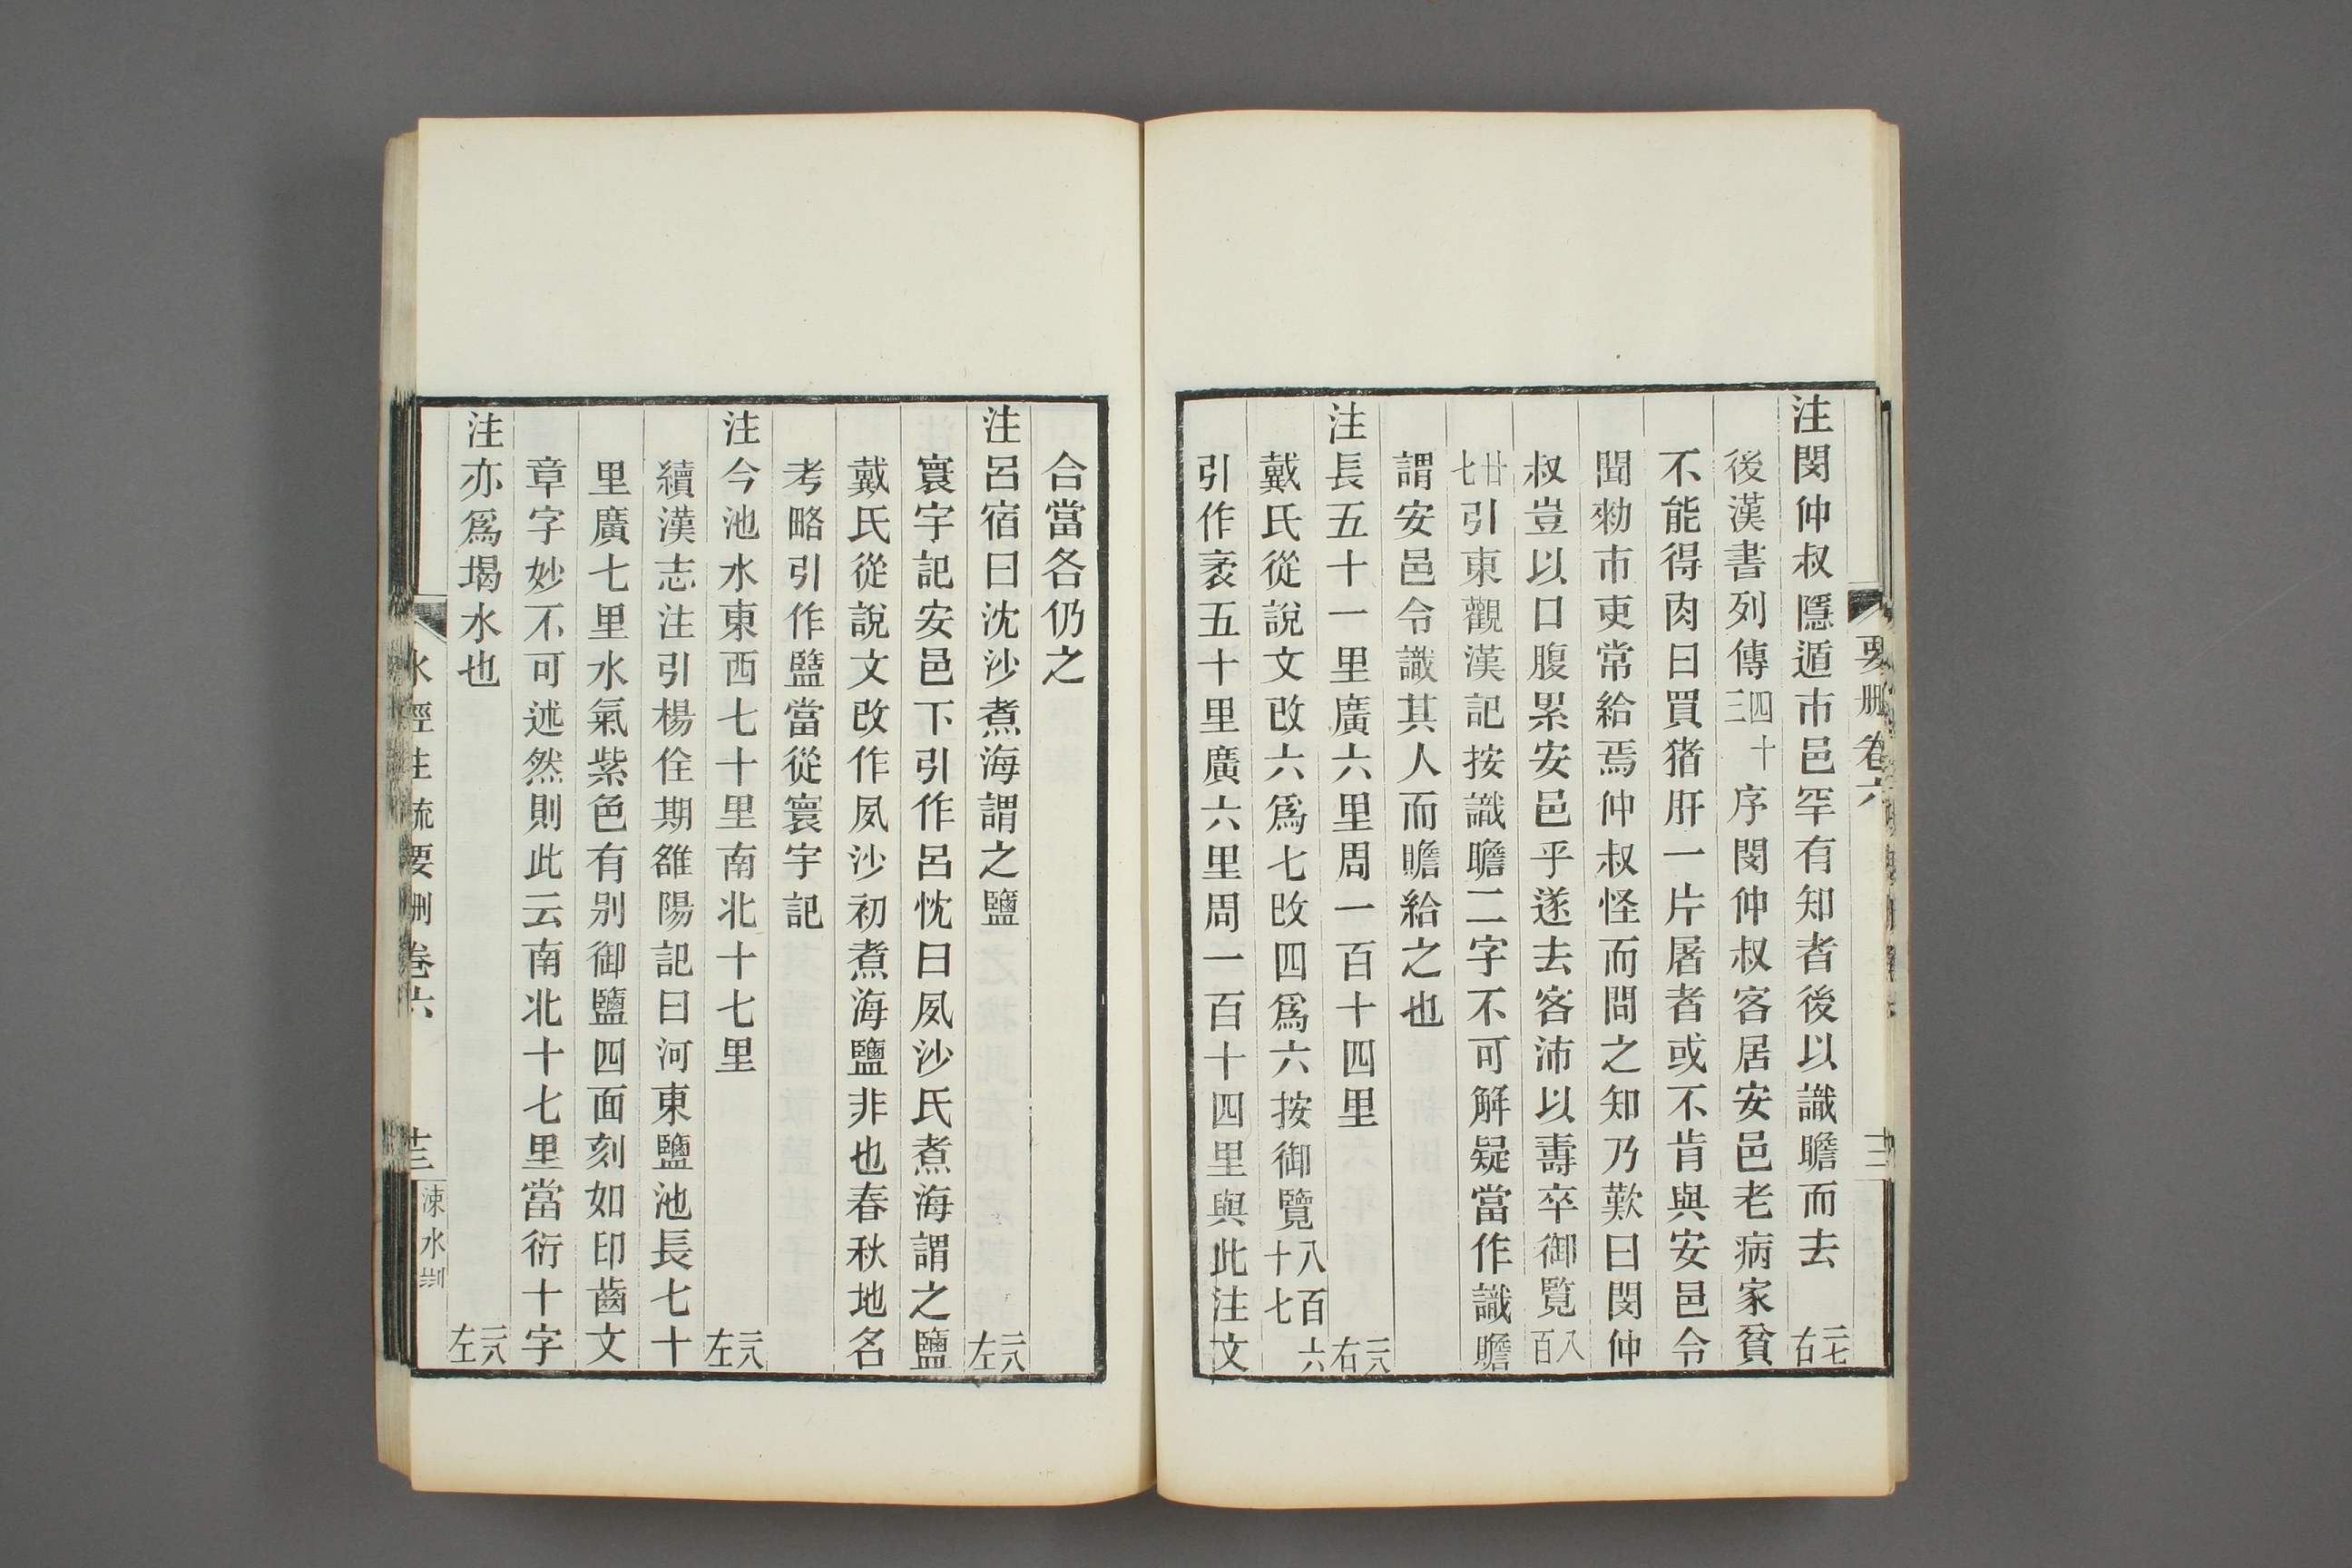 注閔仲叔隱遁市邑罕有知者後以識瞻而去 三七右
後漢書列傳四十三序閔仲叔客居安邑老病家貧
不能得肉日買猪肝一片屠者或不肯與安邑令
聞勑市吏常給焉仲叔怪而問之知乃歎曰閔仲
叔豈以口腹累安邑乎遂去客沛以壽卒御覽八百
廿七引東觀漢記按識瞻二字不可解疑當作識贍
謂安邑令識其人而贍給之也
注長五十一里廣六里周一百十四里 三八右
戴氏從說文改六爲七改四爲六按御覽八百六十七
引作袤五十里廣六里周一百十四里與此注文
合當各仍之
注呂宿曰沈沙煮海謂之鹽 三八左
寰宇記安邑下引作呂忱曰夙沙氏煮海謂之鹽
戴氏從說文改作夙沙初煮海鹽非也春秋地名
考略引作鹽當從寰宇記
注今池水東西七十里南北十七里 三八左
續漢志注引楊佺期雒陽記曰河東鹽池長七十
里廣七里水氣紫色有別御鹽四面刻如印齒文
章字妙不可述然則此云南北十七里當衍十字
注亦爲堨水也 三八左
水經注疏要刪卷六 十三 涑水